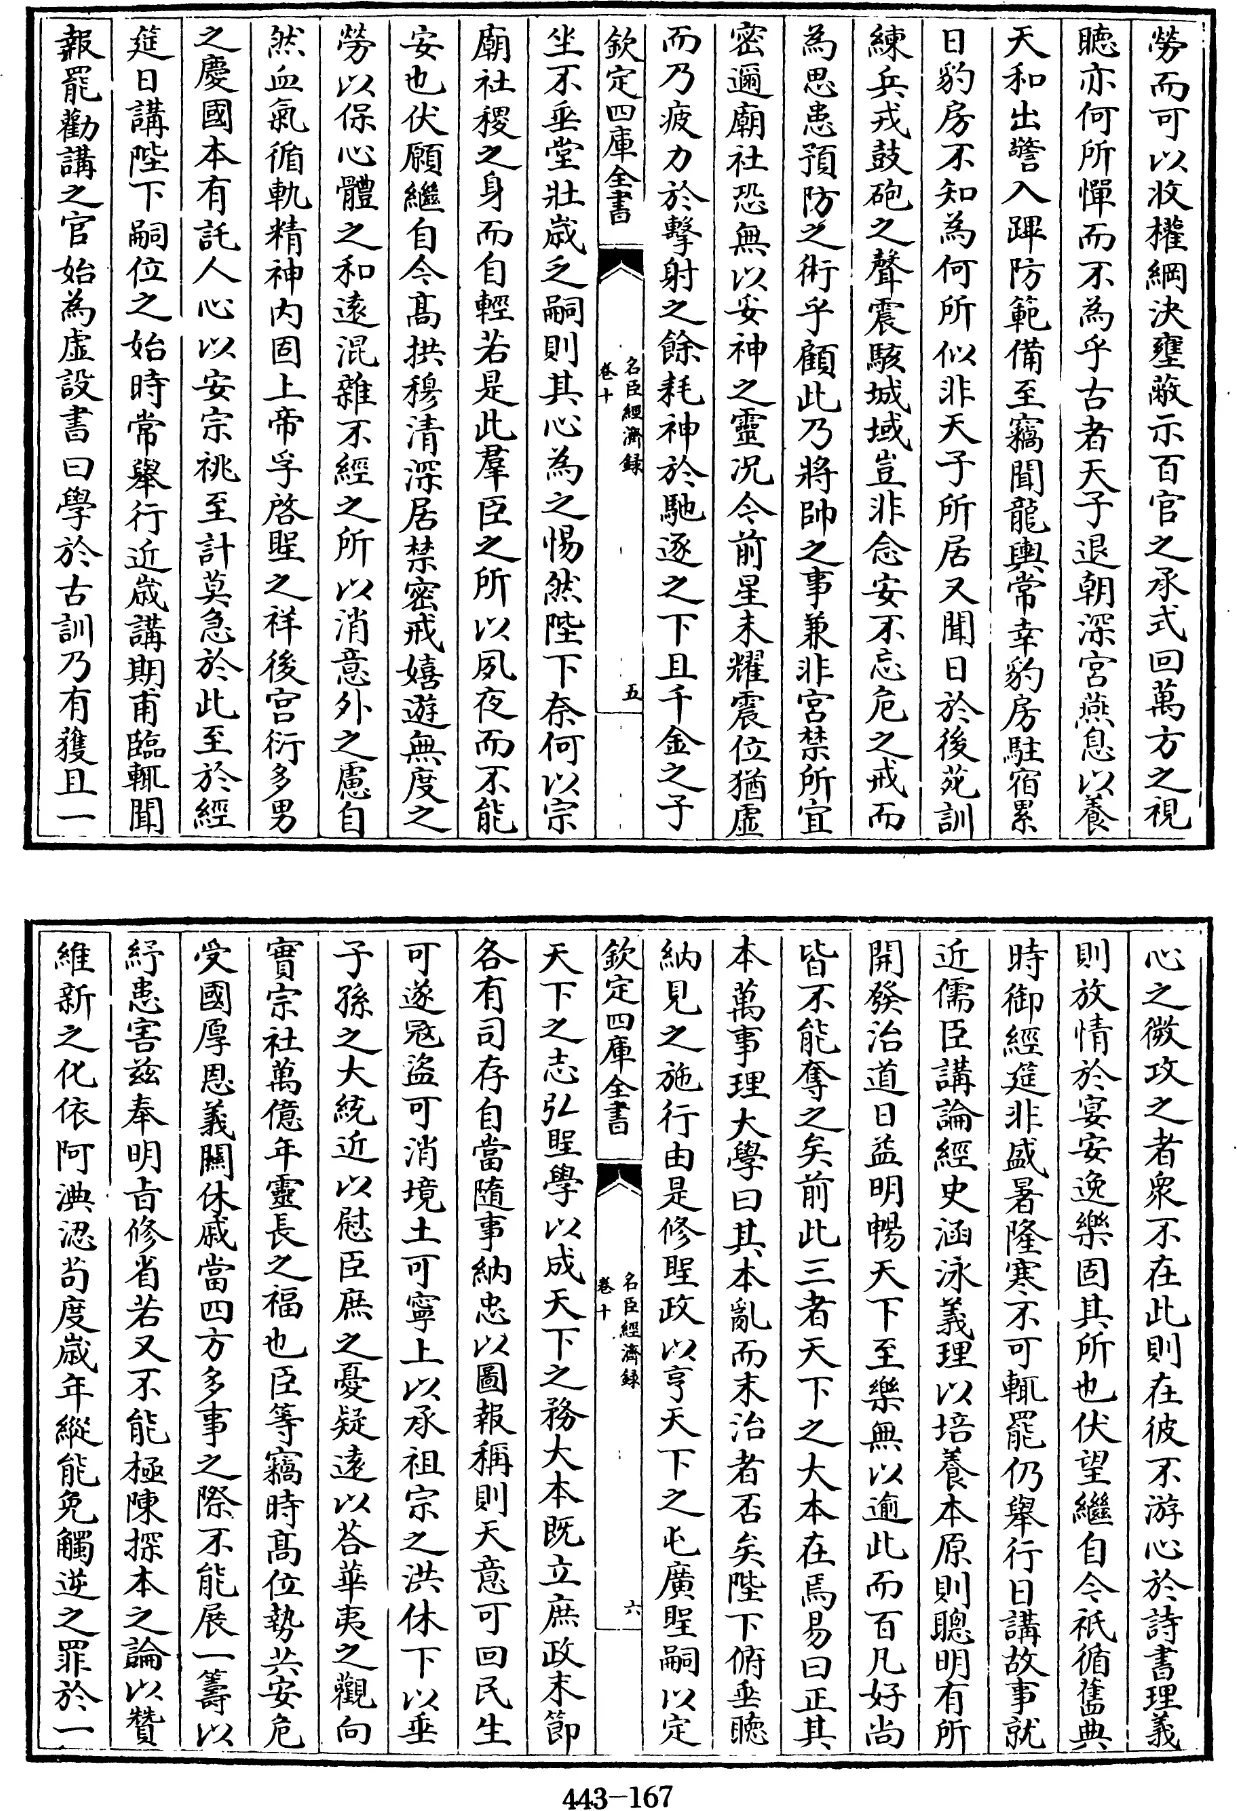 勞而可以收權綱決壅蔽示百官之承式回萬方之視
聽亦何所憚而不為乎古者天子退朝深宮燕息以養
天和出警入蹕防範備至竊聞龍輿常幸豹房駐宿累
日豹房不知為何所似非天子所居又聞日於後苑訓
練兵戎鼓砲之聲震駭城域豈非念安不忘危之戒而
為思患預防之術乎顧此乃將帥之事兼非宮禁所宜
密邇廟社恐無以妥神之靈况今前星未耀震位猶虛
而乃疲力於擊射之餘耗神於馳逐之下且千金之子
欽定四庫全書
名臣經濟録
卷十
五
坐不垂堂壯歳乏嗣則其心為之惕然陛下奈何以宗
廟社稷之身而自輕若是此羣臣之所以夙夜而不能
安也伏願繼自今高拱穆清深居禁密戒嬉遊無度之
勞以保心體之和遠混雜不經之所以消意外之慮自
然血氣循軌精神内固上帝孚啓聖之祥後宮衍多男
之慶國本有託人心以安宗祧至計莫急於此至於經
筵日講陛下嗣位之始時常舉行近歳講期甫臨輒聞
報罷勸講之官始為虛設書曰學於古訓乃有獲且一
心之微攻之者衆不在此則在彼不游心於詩書理義
則放情於宴安逸樂固其所也伏望繼自今祇循舊典
時御經筵非盛暑隆寒不可輒罷仍舉行日講故事就
近儒臣講論經史涵泳義理以培養本原則聰明有所
開發治道日益明暢天下至樂無以逾此而百凡好尚
皆不能奪之矣前此三者天下之大本在焉易曰正其
本萬事理大學曰其本亂而末治者否矣陛下俯垂聽
納見之施行由是修聖政以亨天下之屯廣聖嗣以定
欽定四庫全書
名臣經濟録
卷十
六
天下之志弘聖學以成天下之務大本既立庶政末節
各有司存自當隨事納忠以圖報稱則天意可回民生
可遂冦盜可消境土可寧上以承祖宗之洪休下以垂
子孫之大統近以慰臣庶之憂疑遠以荅華夷之觀向
實宗社萬億年靈長之福也臣等竊時高位勢共安危
受國厚恩義關休戚當四方多事之際不能展一籌以
紓患害兹奉明㫖修省若又不能極陳探本之論以贊
維新之化依阿淟涊苟度歳年縱能免觸逆之罪於一
443-167